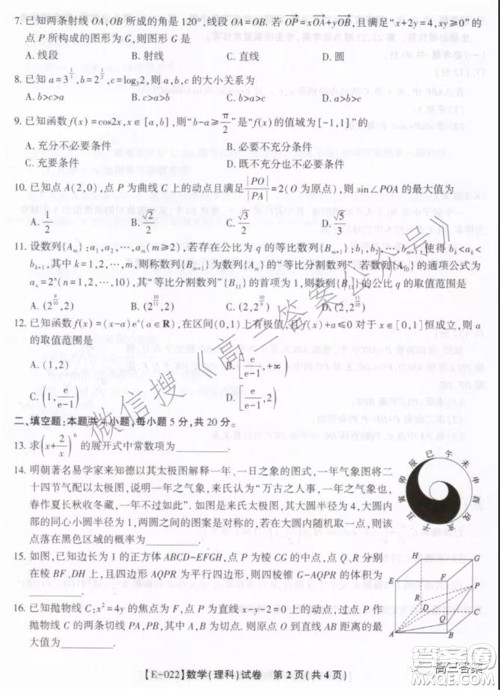 7. 已知两条射线OA,OB所成的角是120°,线段OA=OB=2,若$\overrightarrow{OP}=x\overrightarrow{OA}+y\overrightarrow{OB}$,且满足“x+2y=4,xy≥0”的
点P所构成的图形为G,则图形G是
A. 线段 B. 射线 C. 直线 D. 圆
8. 已知 c=log₃2,则a,b,c的大小关系为
A. b>c>a B. a>b>c C. c>a>b D. b>a>c
9. 已知函数f(x)=cos2x,x∈[a,b],则“b-a≥π/2”是“f(x)的值域为[-1,1]”的
A. 充分不必要条件 B. 必要不充分条件
C. 充要条件 D. 既不充分也不必要条件
10. 已知点A(2,0),点P为曲线C上的动点且满足|PO|/|PA|=2(O为原点),则sin∠POA的最大值为
A. 1/2 B. √2/2 C. √3/2 D. √5/3
11. 设数列{Aₘ}:a₁,a₂,…,aₘ(m≥2),若存在公比为q的等比数列{Bₘ₊₁}:b₁,b₂,…,bₘ₊₁,使得bₖ<aₖ<
bₖ₊₁,其中k=1,2,…,m,则称数列{Bₘ₊₁}为数列{Aₘ}的“等比分割数列”.若数列{A₁₀}的通项公式为
aₙ=2ⁿ(n=1,2,…,10),其“等比分割数列”{B₁₁}的首项为1,则数列{B₁₁}的公比q的取值范围是
12. 已知函数f(x)=(x-a)eˣ(a∈R),在区间(0,1)上有极值,且f(x)+a≤0对于x∈[0,1]恒成立,则a
的取值范围是
A. (1,2) B. [e/(e-1),+∞)
C. (1,e/(e-1)] D. [e/(e-1),2)
二、填空题:本题共4小题,每小题5分,共20分。
13. 求(x+2/x)⁶的展开式中常数项为________.
14. 明朝著名易学家来知德以其太极图解释一年、一日之象的图式,一年气象图将二
十四节气配以太极图,说明一年之气象,来氏认为“万古之人事,一年之气象也,
春作夏长秋收冬藏,一年不过如此”.如图是来氏太极图,其大圆半径为4,大圆内
部的同心小圆半径为1,两圆之间的图案是对称的,若在大圆内随机取一点,则该
点落在黑色区域的概率为________.
15. 如图,已知边长为1的正方体ABCD-EFGH,点P为棱CG的中点,点Q、R分别
在棱BF,DH上,且四边形AQPR为平行四边形,则以四边形AQPR为底面,顶点
为G的四棱锥G-AQPR的体积为________.
16. 已知抛物线C:x²=4y的焦点为F,点P为直线x-y-2=0上的动点,过点P作
抛物线C的两条切线PA,PB,其中A,B为切点,则原点O到直线AB距离的最
大值为________.
微信搜《高三答案公众号》
【E-022】数学(理科)试卷 第2页(共4页)
高三答案